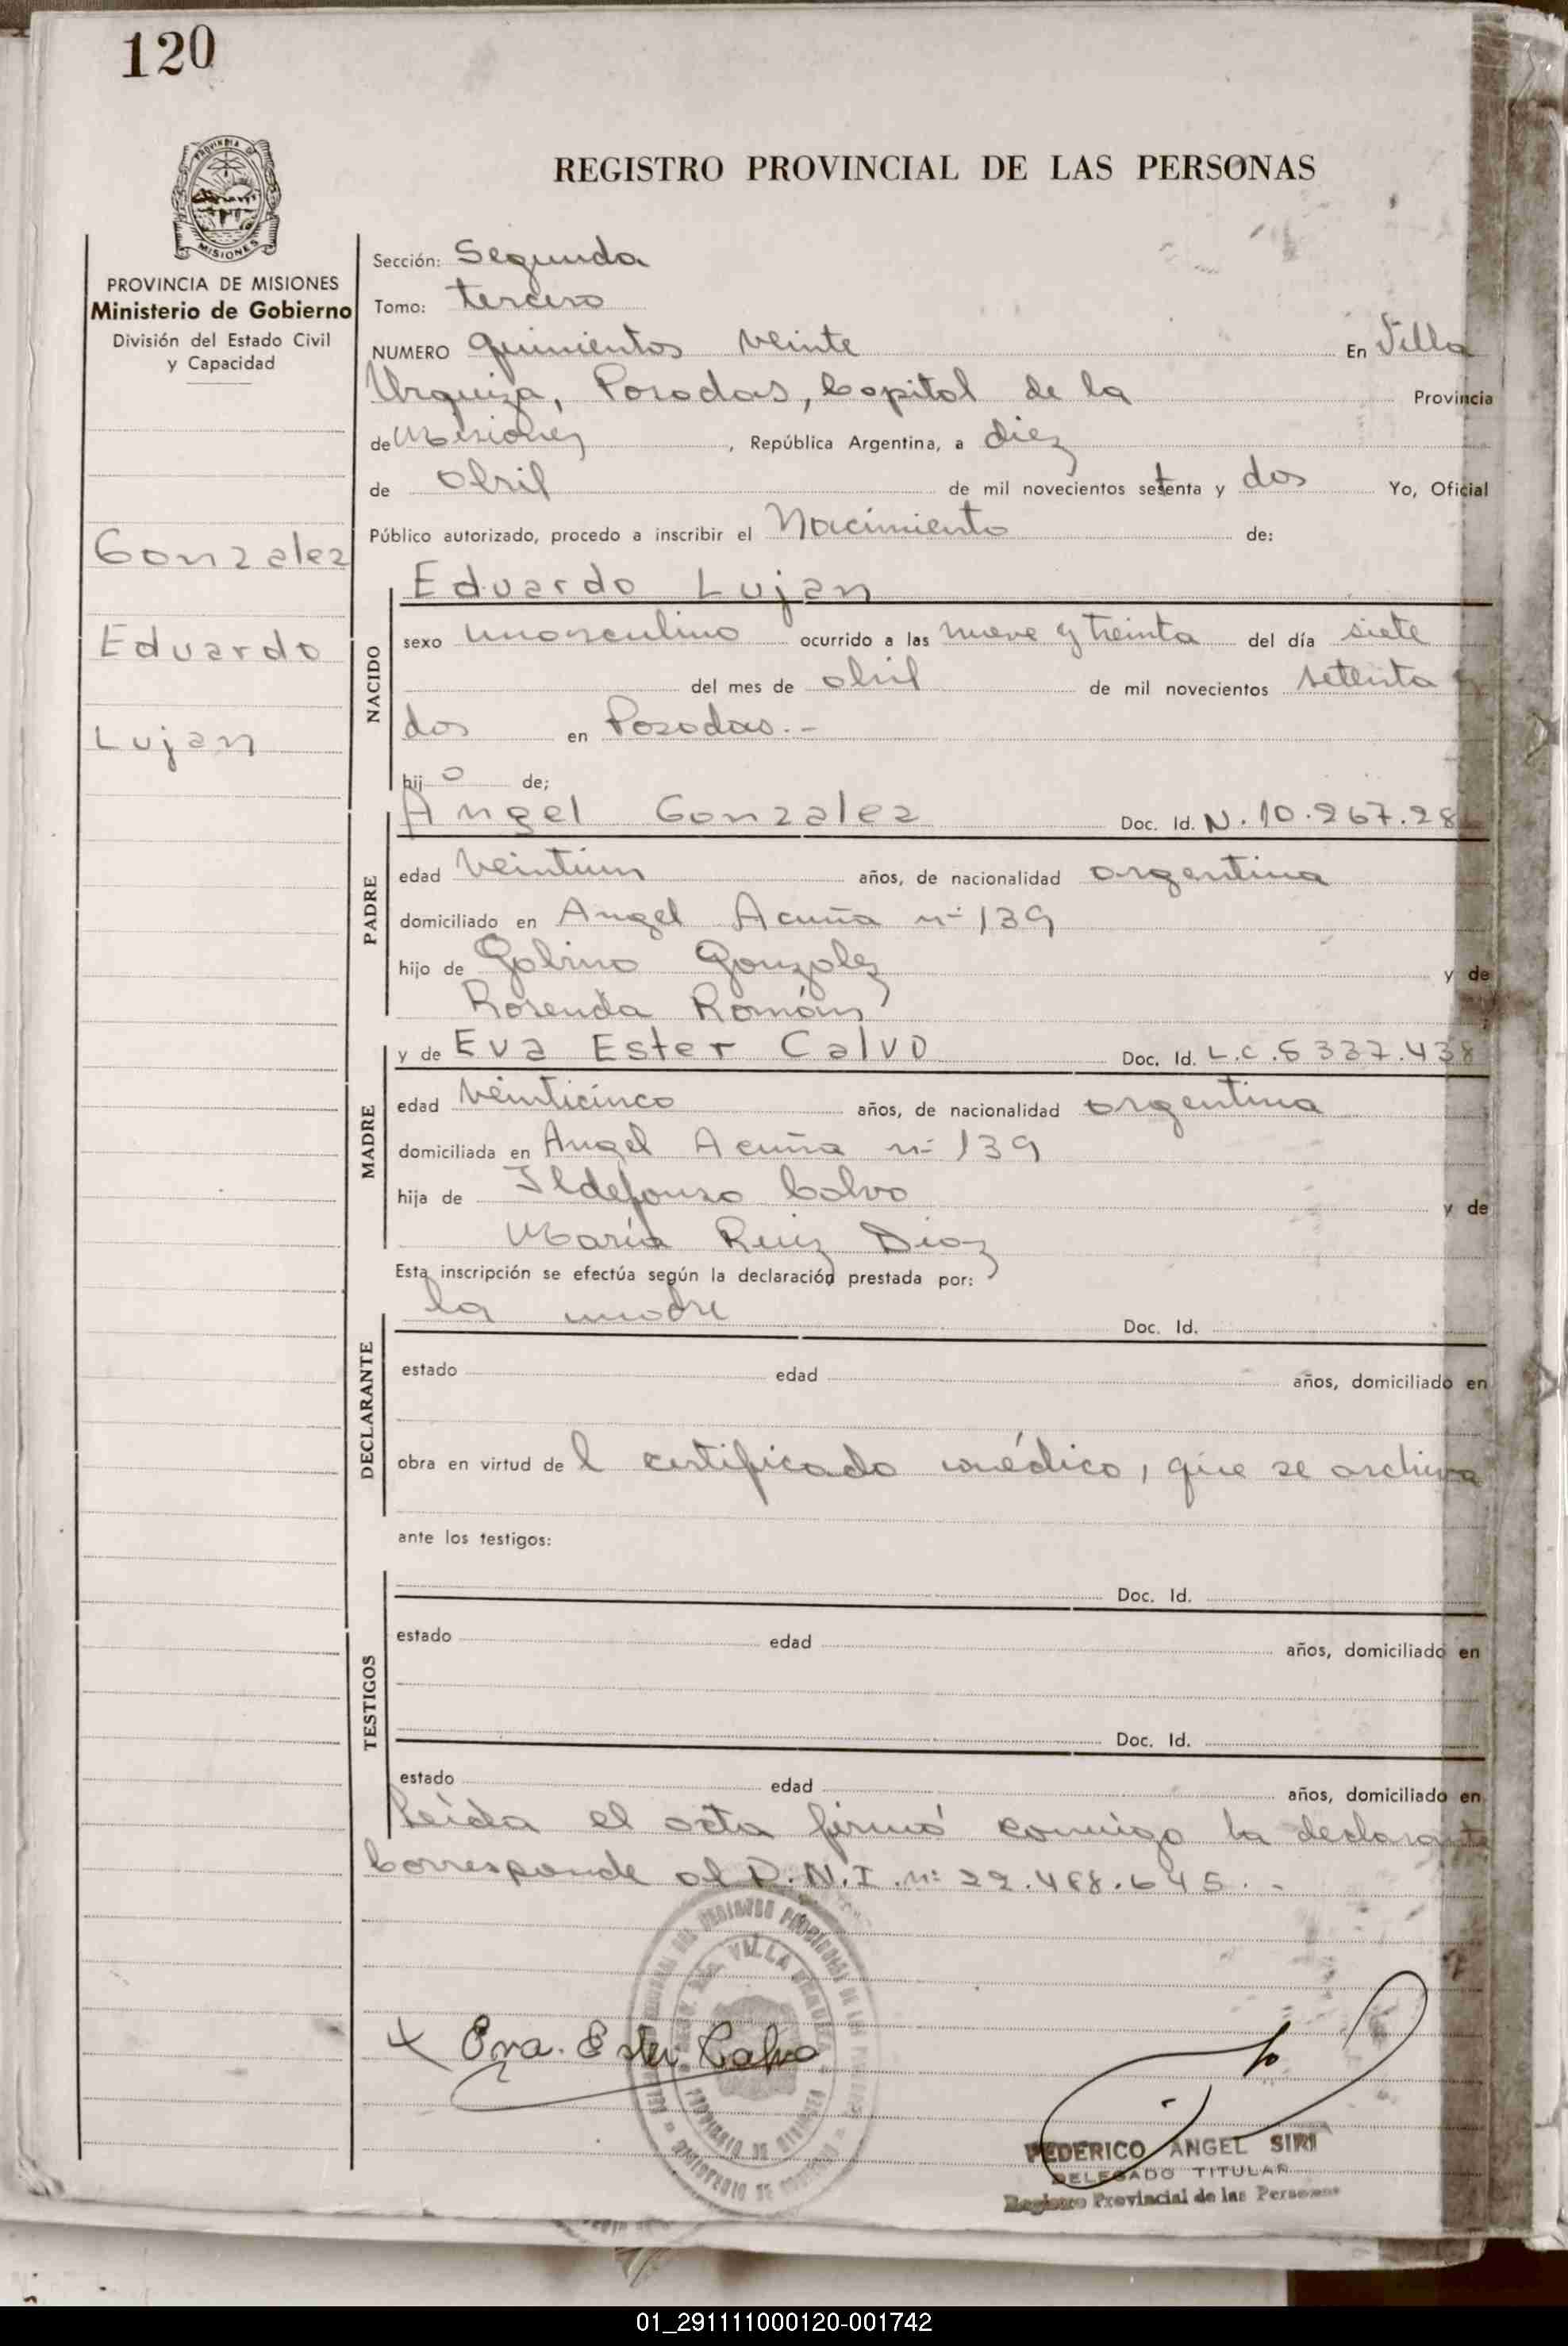 120
PROVINCIA DE
MISIONES
REGISTRO PROVINCIAL DE LAS PERSONAS
PROVINCIA DE MISIONES
Ministerio de Gobierno
División del Estado Civil
y Capacidad
Gonzalez
Eduardo
Lujan
Sección: Segunda
Tomo: tercero
NUMERO quinientos veinte En Villa
Urquiza, Posadas, Capital de la Provincia
de Misiones, República Argentina, a diez
de abril de mil novecientos setenta y dos Yo, Oficial
Público autorizado, procedo a inscribir el Nacimiento de:
Eduardo Lujan
NACIDO
sexo masculino ocurrido a las nueve y treinta del día siete
del mes de abril de mil novecientos setenta y
dos en Posadas.-
hijo de;
PADRE
Angel Gonzalez Doc. Id. N. 10.267.28
edad veintiun años, de nacionalidad argentina
domiciliado en Angel Acuña nº 139
hijo de Gabino Gonzalez y de
Rosenda Román
MADRE
y de Eva Ester Calvo Doc. Id. L.C.5337.438
edad veinticinco años, de nacionalidad argentina
domiciliada en Angel Acuña nº 139
hija de Ildefonso Calvo y de
María Ruiz Diaz
Esta inscripción se efectúa según la declaración prestada por:
DECLARANTE
la madre Doc. Id.
estado edad años, domiciliado en
obra en virtud del certificado médico, que se archiva
ante los testigos:
TESTIGOS
Doc. Id.
estado edad años, domiciliado en
Doc. Id.
estado edad años, domiciliado en
Leída el acta firmó conmigo la declarante
Corresponde al D.N.I. nº 22.468.645.-
VILLA URQUIZA
Eva. Ester. Calvo
FEDERICO ANGEL SIRI
DELEGADO TITULAR
Registro Provincial de las Personas
01_291111000120-001742